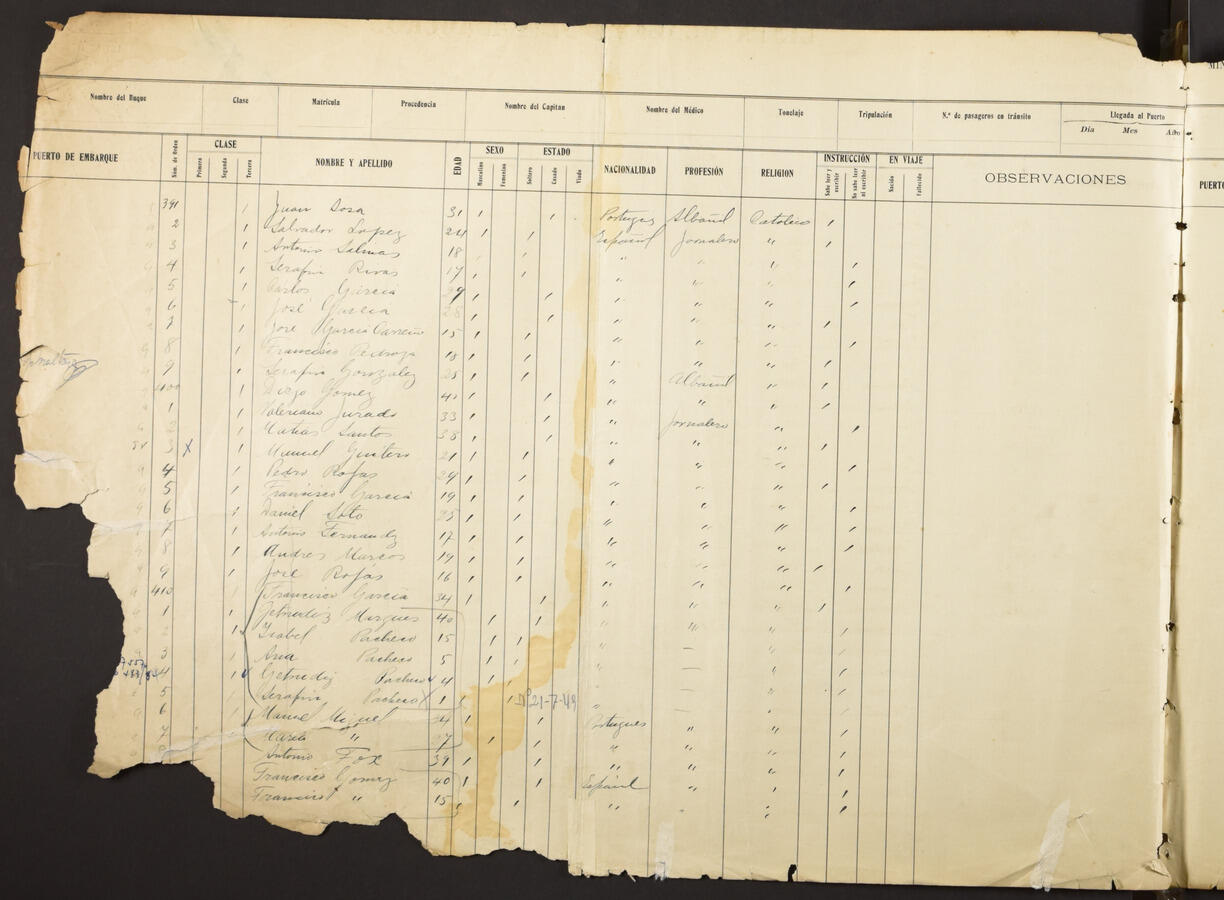 Nombre del Buque Clase Matrícula Procedencia Nombre del Capitan Nombre del Médico Tonelaje Tripulación N.º de pasageros en tránsito Llegada al Puerto
Dia Mes Año
PUERTO DE EMBARQUE Núm. de Orden CLASE Primera Segunda Tercera NOMBRE Y APELLIDO EDAD SEXO Masculino Femenino ESTADO Soltero Casado Viudo NACIONALIDAD PROFESIÓN RELIGION INSTRUCCIÓN Sabe leer y escribir No sabe leer ni escribir EN VIAJE Nacido Fallecido OBSERVACIONES
391 Juan Sosa 31 Portugues Albañil Catolico
2 Salvador Lopez 24 Español Jornalero "
3 Antonio Salinas 18 " " "
4 Serafin Rivas 17 " " "
5 Carlos Garcia 29 " " "
6 José Garcia 28 " " "
7 José Garcia Carreño 15 " " "
8 Francisco Pedroza 18 " " "
9 Serafin Gonzalez 25 " Albañil "
400 Diego Gomez " " "
1 Valeriano Jurado 33 " Jornalero "
2 Matias Santos 38 " " "
3 X Manuel 21 " " "
4 Pedro Rojas 24 " " "
5 Francisco Garcia 19 " " "
6 Daniel Soto 25 " " "
7 Antonio Fernandz 17 " " "
8 Andres Marcos 19 " " "
9 José Rojas 16 " " "
410 Francisco Garcia 34 " " "
1 Getrudiz Marques 40 " " "
2 Isabel Pacheco 15 " — "
3 Ana Pacheco 5 " — "
4 Getrudiz Pacheco 4 " — "
5 Serafin Pacheco 1 21-7-49 " — "
6 Manuel Miguel 34 Portugues " "
7 Maria " 27 " " "
Antonio Fox 39 " " "
Francisco Gomez 40 Español " "
Francisco " 15 " " "